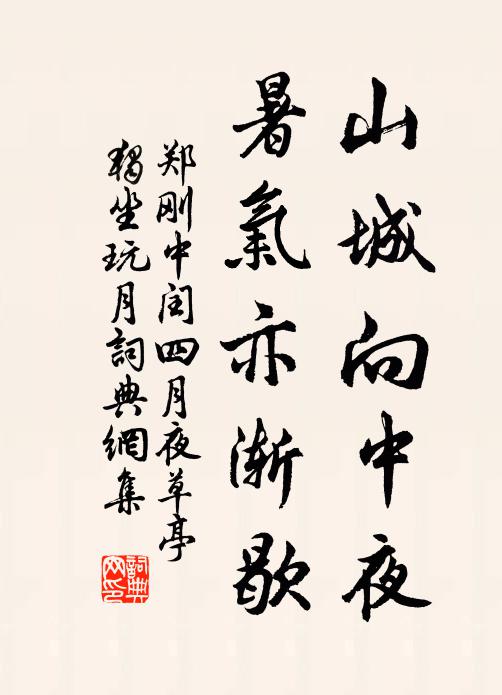 山城向中夜
暑氣亦漸歇
郑刚中闰四月夜草亭
獨坐玩月詞典網集
詞典
网印